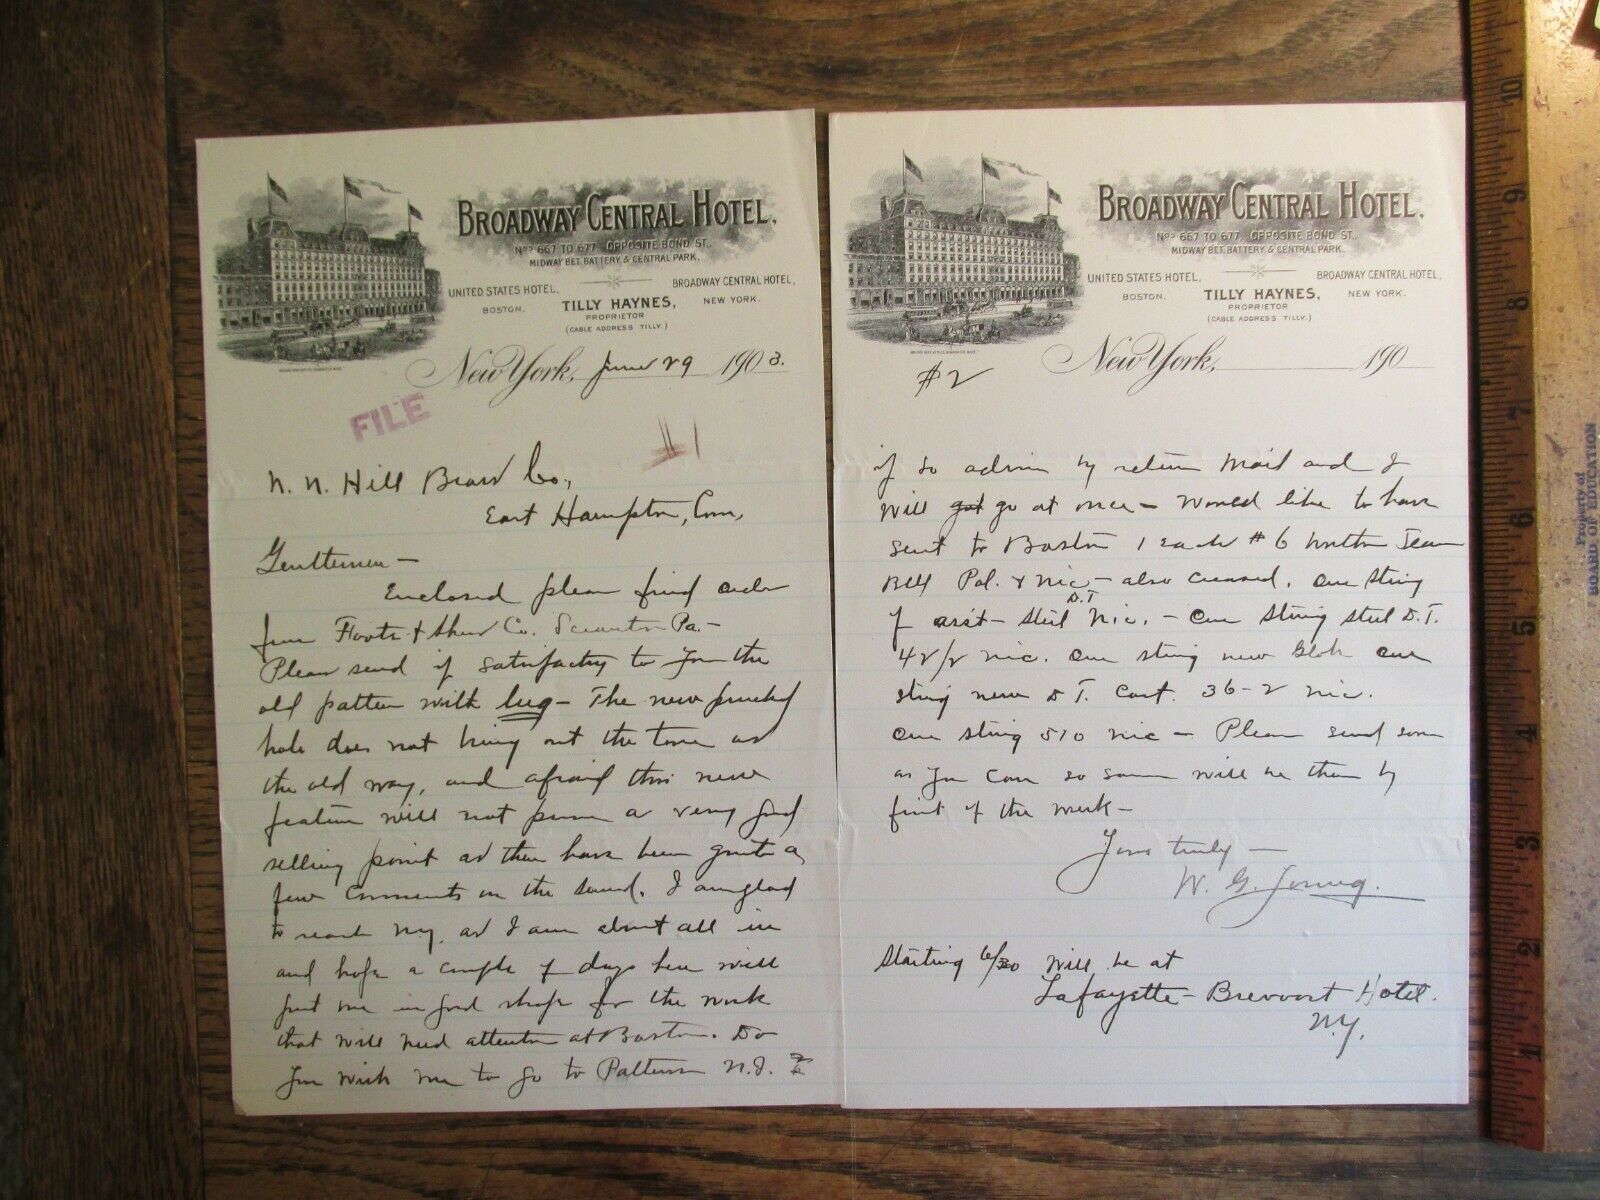 BROADWAY CENTRAL HOTEL,
Nos 667 TO 677 OPPOSITE BOND ST.,
MIDWAY BET. BATTERY & CENTRAL PARK.
UNITED STATES HOTEL,
BOSTON.
TILLY HAYNES,
PROPRIETOR
(CABLE ADDRESS TILLY.)
BROADWAY CENTRAL HOTEL,
NEW YORK.
New York, June 29 1903.
FILE
#1
N. N. Hill Brass Co.,
East Hampton, Conn,
Gentlemen —
Enclosed please find order
from Foote & Shear Co. Scranton Pa. —
Please send if satisfactory to you the
old pattern with lug — The new punched
hole does not bring out the tone as
the old way, and afraid this new
feature will not prove a very good
selling point as there have been quite a
few comments on the sound. I am glad
to reach N.Y. as I am about all in
and hope a couple of days here will
put me in good shape for the work
that will need attention at Boston. Do
you wish me to go to Patterson N.J.
BROADWAY CENTRAL HOTEL,
Nos 667 TO 677 OPPOSITE BOND ST.,
MIDWAY BET. BATTERY & CENTRAL PARK.
UNITED STATES HOTEL,
BOSTON.
TILLY HAYNES,
PROPRIETOR
(CABLE ADDRESS TILLY.)
BROADWAY CENTRAL HOTEL,
NEW YORK.
New York, 190
#2
if so advise by return mail and I
will got go at once — Would like to have
sent to Boston 1 each #6 Team
Bell Pol. & Nic — also one string
of asst — Steel D.T. Nic. — One string steel D.T.
42/2 nic. One string new Globe one
string new D.T. Cast. 36-2 nic.
One string 510 nic — Please send soon
as you can so same will be there by
first of the week —
Yours truly —
W. G. Young.
Starting 6/30 will be at
Lafayette – Brevoort Hotel.
N.Y.
Property of
BOARD OF EDUCATION
10
9
8
7
6
5
4
3
2
1